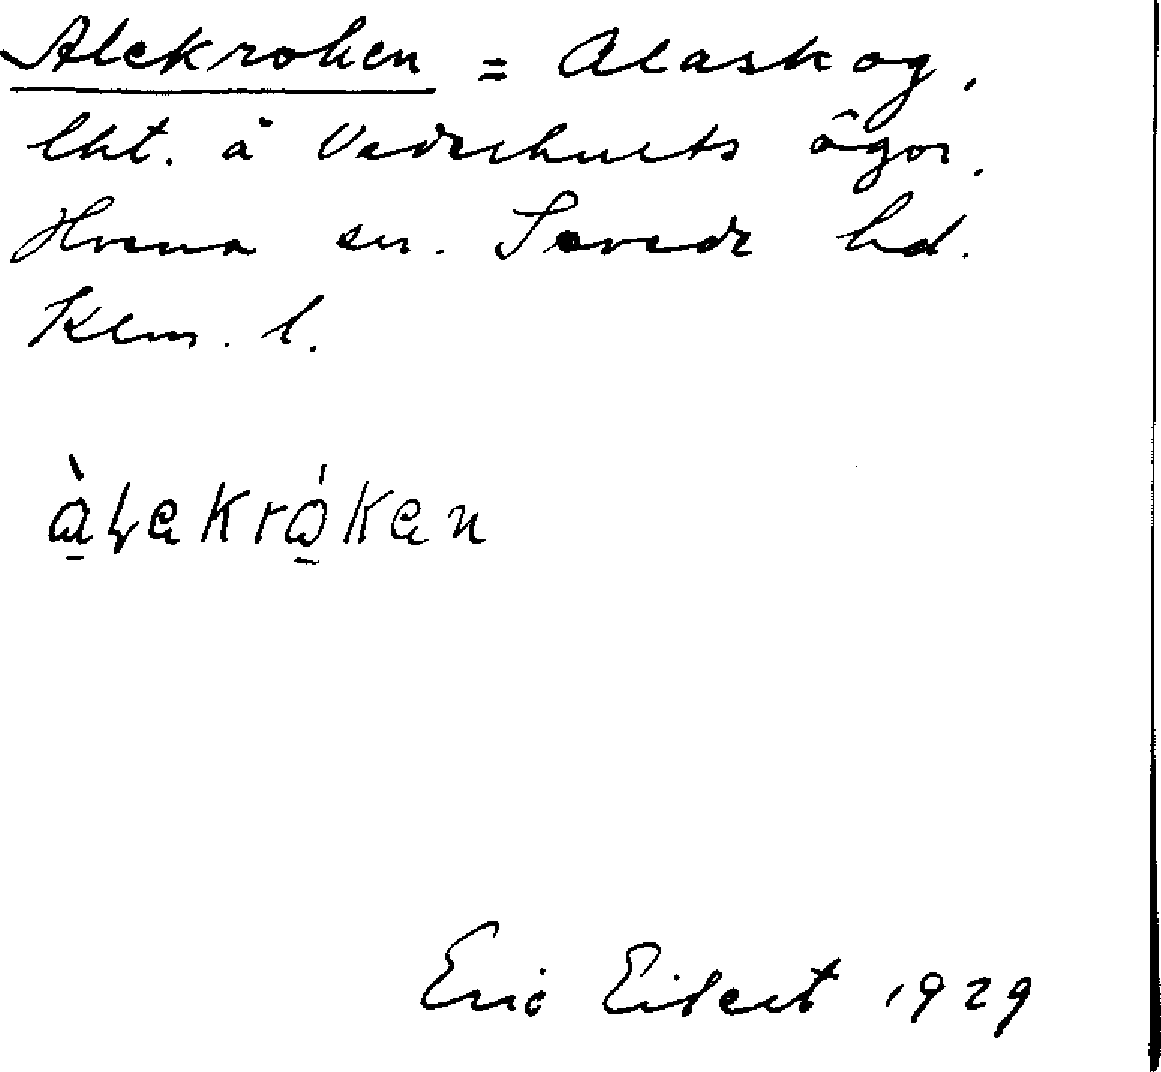 Alekroken = Alaskog,
lht. å Vederhults ägor.
Hvena sn. Sevede hd.
Klm. l.
à̱ɫekrá̱ken
Eric Eilert 1929